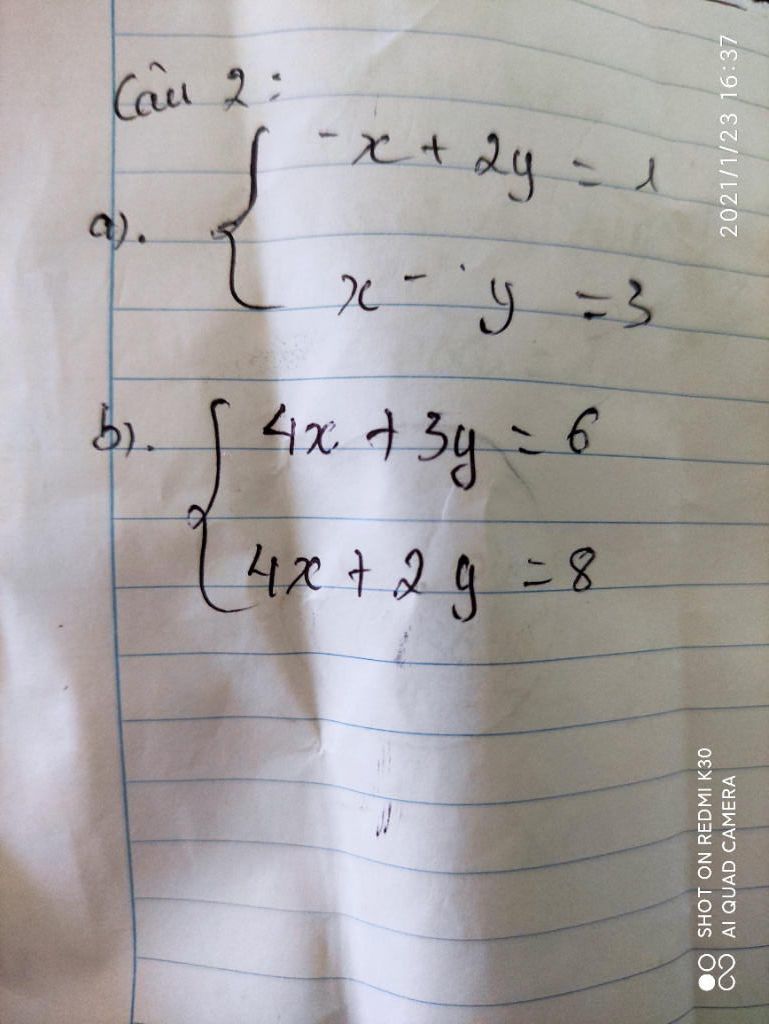 Câu 2:
a). { -x + 2y = 1
x - y = 3
b). { 4x + 3y = 6
4x + 2y = 8
2021/1/23 16:37
SHOT ON REDMI K30
AI QUAD CAMERA